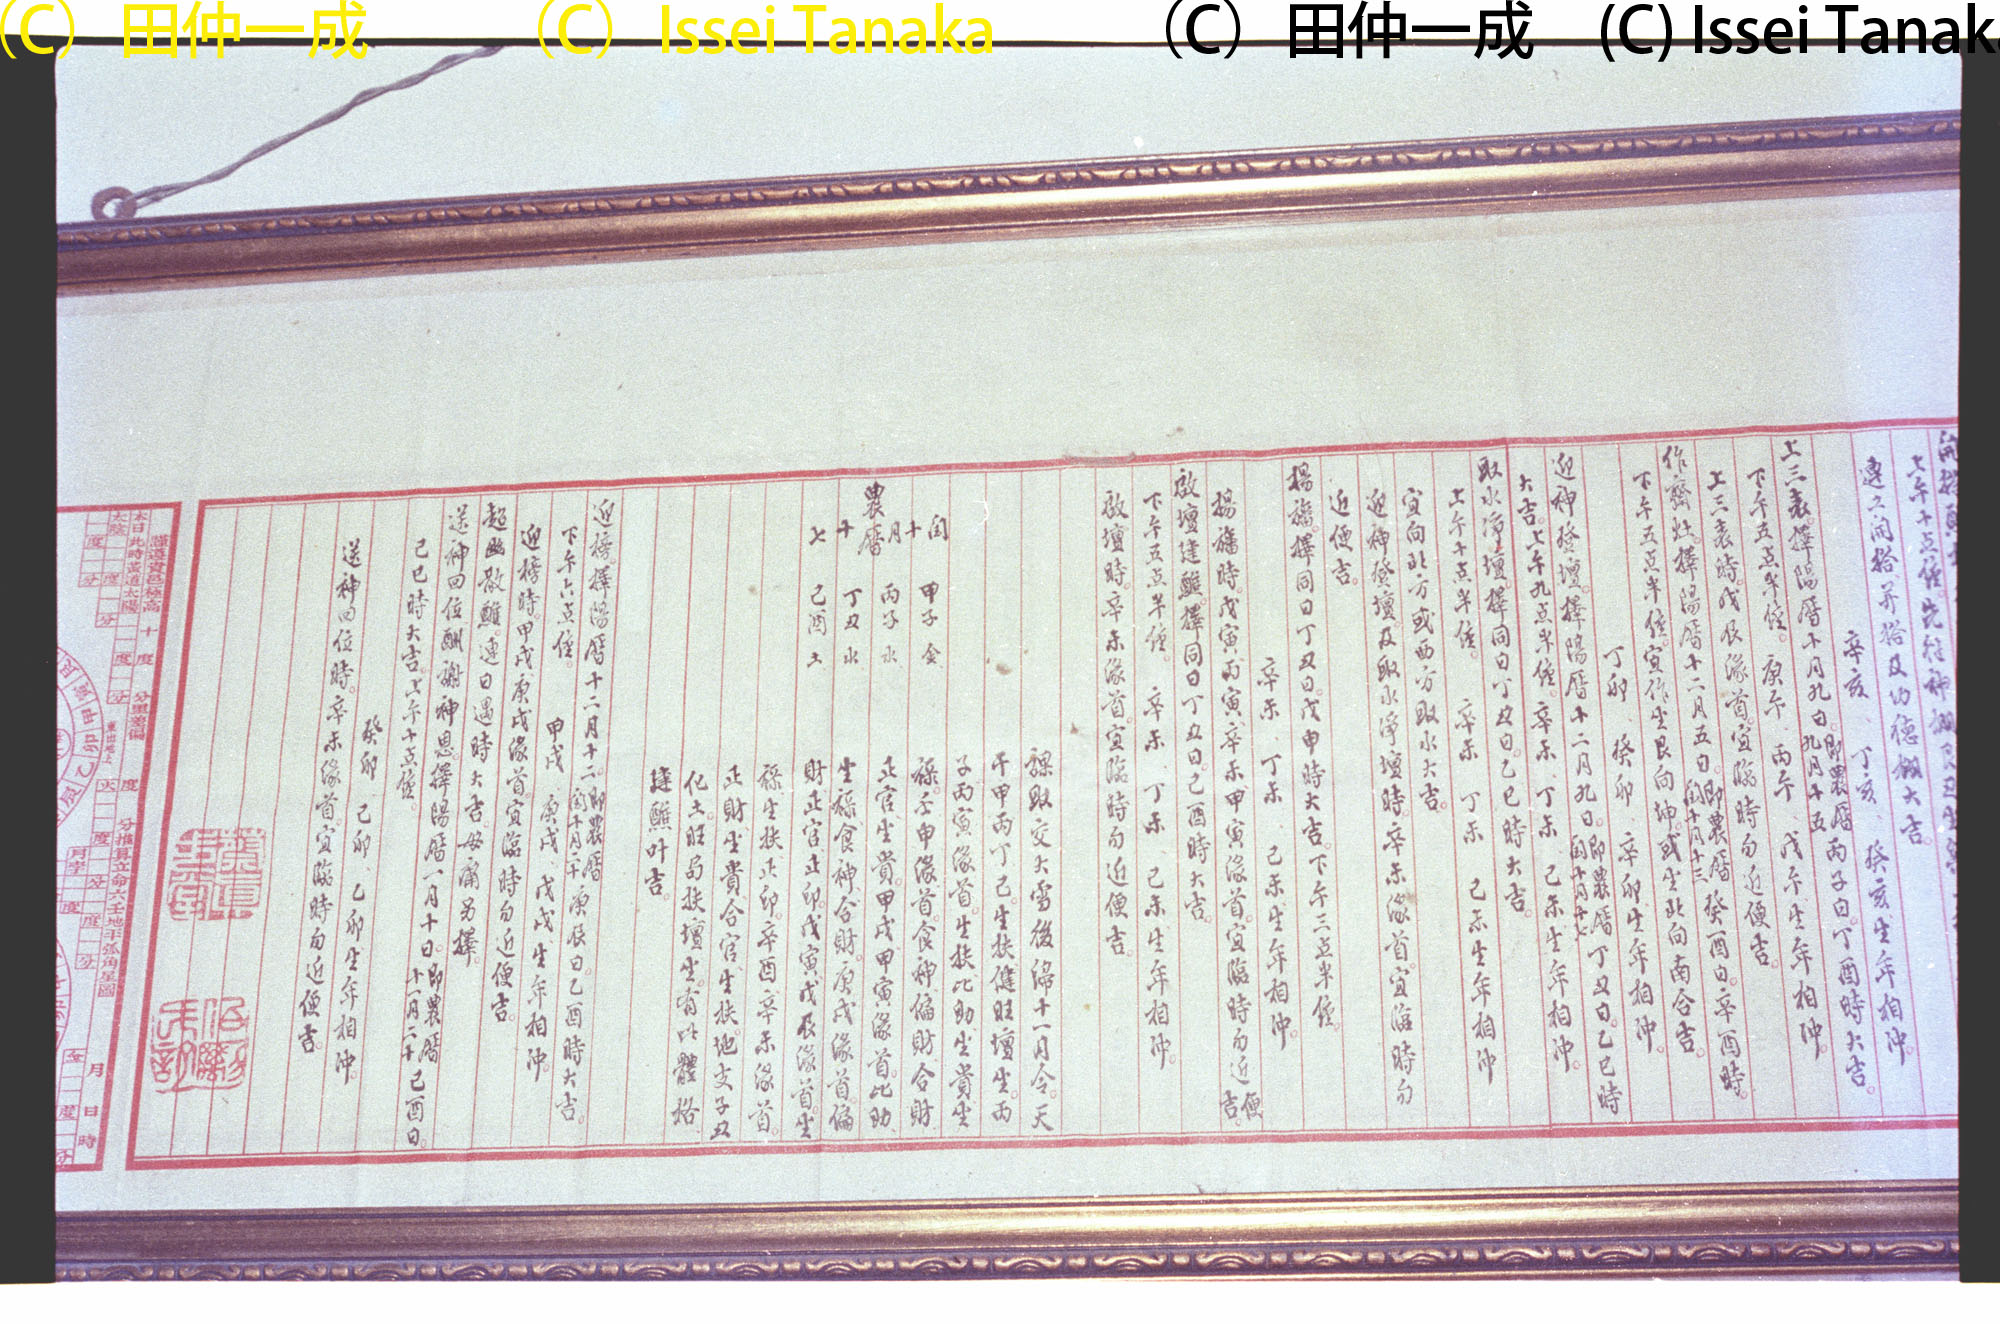 (C) 田仲一成
(C) Issei Tanaka
(C) 田仲一成
(C) Issei Tanaka
上午十点鐘。先在神棚艮丑
連之開搭。并搭及功德棚大吉。
辛亥、丁亥、癸亥生年相沖。
上三表。擇陽曆十月九日。即農曆九月十五丙子日。丁酉時大吉。
下午五点半鐘。庚午、丙午、戊午生年相沖。
上三表時。戊辰緣首。宜臨時勿近便吉。
作齋灶。擇陽曆十二月五日。即農曆閏十月十三癸酉日。辛酉時。
下午五点半鐘。寅作坐艮向坤。或坐北向南合吉。
丁卯、癸卯、辛卯生年相沖。
迎神登壇。擇陽曆十二月九日。即農曆閏十月十七丁丑日。乙巳時
大吉。上午九点半鐘。辛未、丁未、己未生年相沖。
取水淨壇。擇同日丁丑日。乙巳時大吉。
上午十点半鐘。辛未、丁未、己未生年相沖
宜向北方或西方取水大吉。
迎神登壇及取水淨壇時。辛未緣首。宜臨時勿
近便吉。
揚旛。擇同日丁丑日。戊申時大吉。下午三点半鐘。
辛未、丁未、己未生年相沖。
揚旛時。戊寅丙寅辛未甲寅緣首。宜臨時勿近便吉。
啟壇建醮。擇同日丁丑日。己酉時大吉。
下午五点半鐘。辛未、丁未、己未生年相沖。
啟壇時。辛未緣首。宜臨時勿近便吉。
課取交大雪後。歸十一月令。天
干甲丙丁己。生扶健旺壇坐。丙
子丙寅緣首。生扶比助坐貴坐
祿。壬申緣首。食神偏財合財
正官坐貴。甲戌甲寅緣首。比助
坐祿食神合財。庚戌緣首。偏
財正官正印。戊寅戊辰緣首。坐
祿生扶正印。辛酉辛未緣首。
正財坐貴合官生扶。地支子丑
化土旺局扶壇坐。有此體格
建醮叶吉。
閏十月十七
農曆
甲子金
丙子水
丁丑水
己酉土
迎榜。擇陽曆十二月十二。即農曆閏十月二十庚辰日。乙酉時大吉。
下午六点鐘。甲戌、庚戌、戊戌生年相沖。
迎榜時。甲戌庚戌緣首。宜臨時勿近便吉。
超幽散醮。連日遇時大吉毋庸另擇。
送神回位酬謝神恩。擇陽曆一月十日。即農曆十一月二十己酉日。
己巳時大吉。上午十点鐘。
癸卯、己卯、乙卯生年相沖。
送神回位時。辛未緣首。宜臨時勿近便吉。
謹遵貴邑極高 十 度 分里差偏 度 分推算立命六壬地平弧角星圖
本日此時黃道太陽
太陰